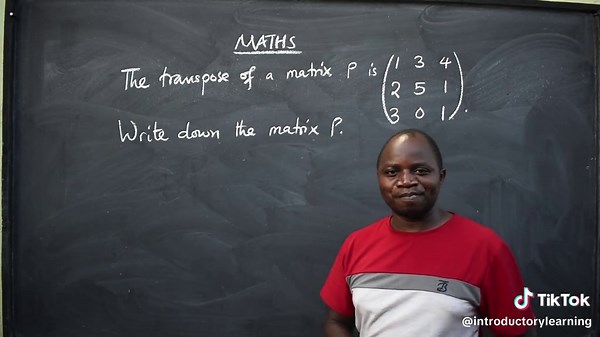 MATHS
The transpose of a matrix P is (1 3 4
2 5 1
3 0 1).
Write down the matrix P.
TikTok
@introductorylearning